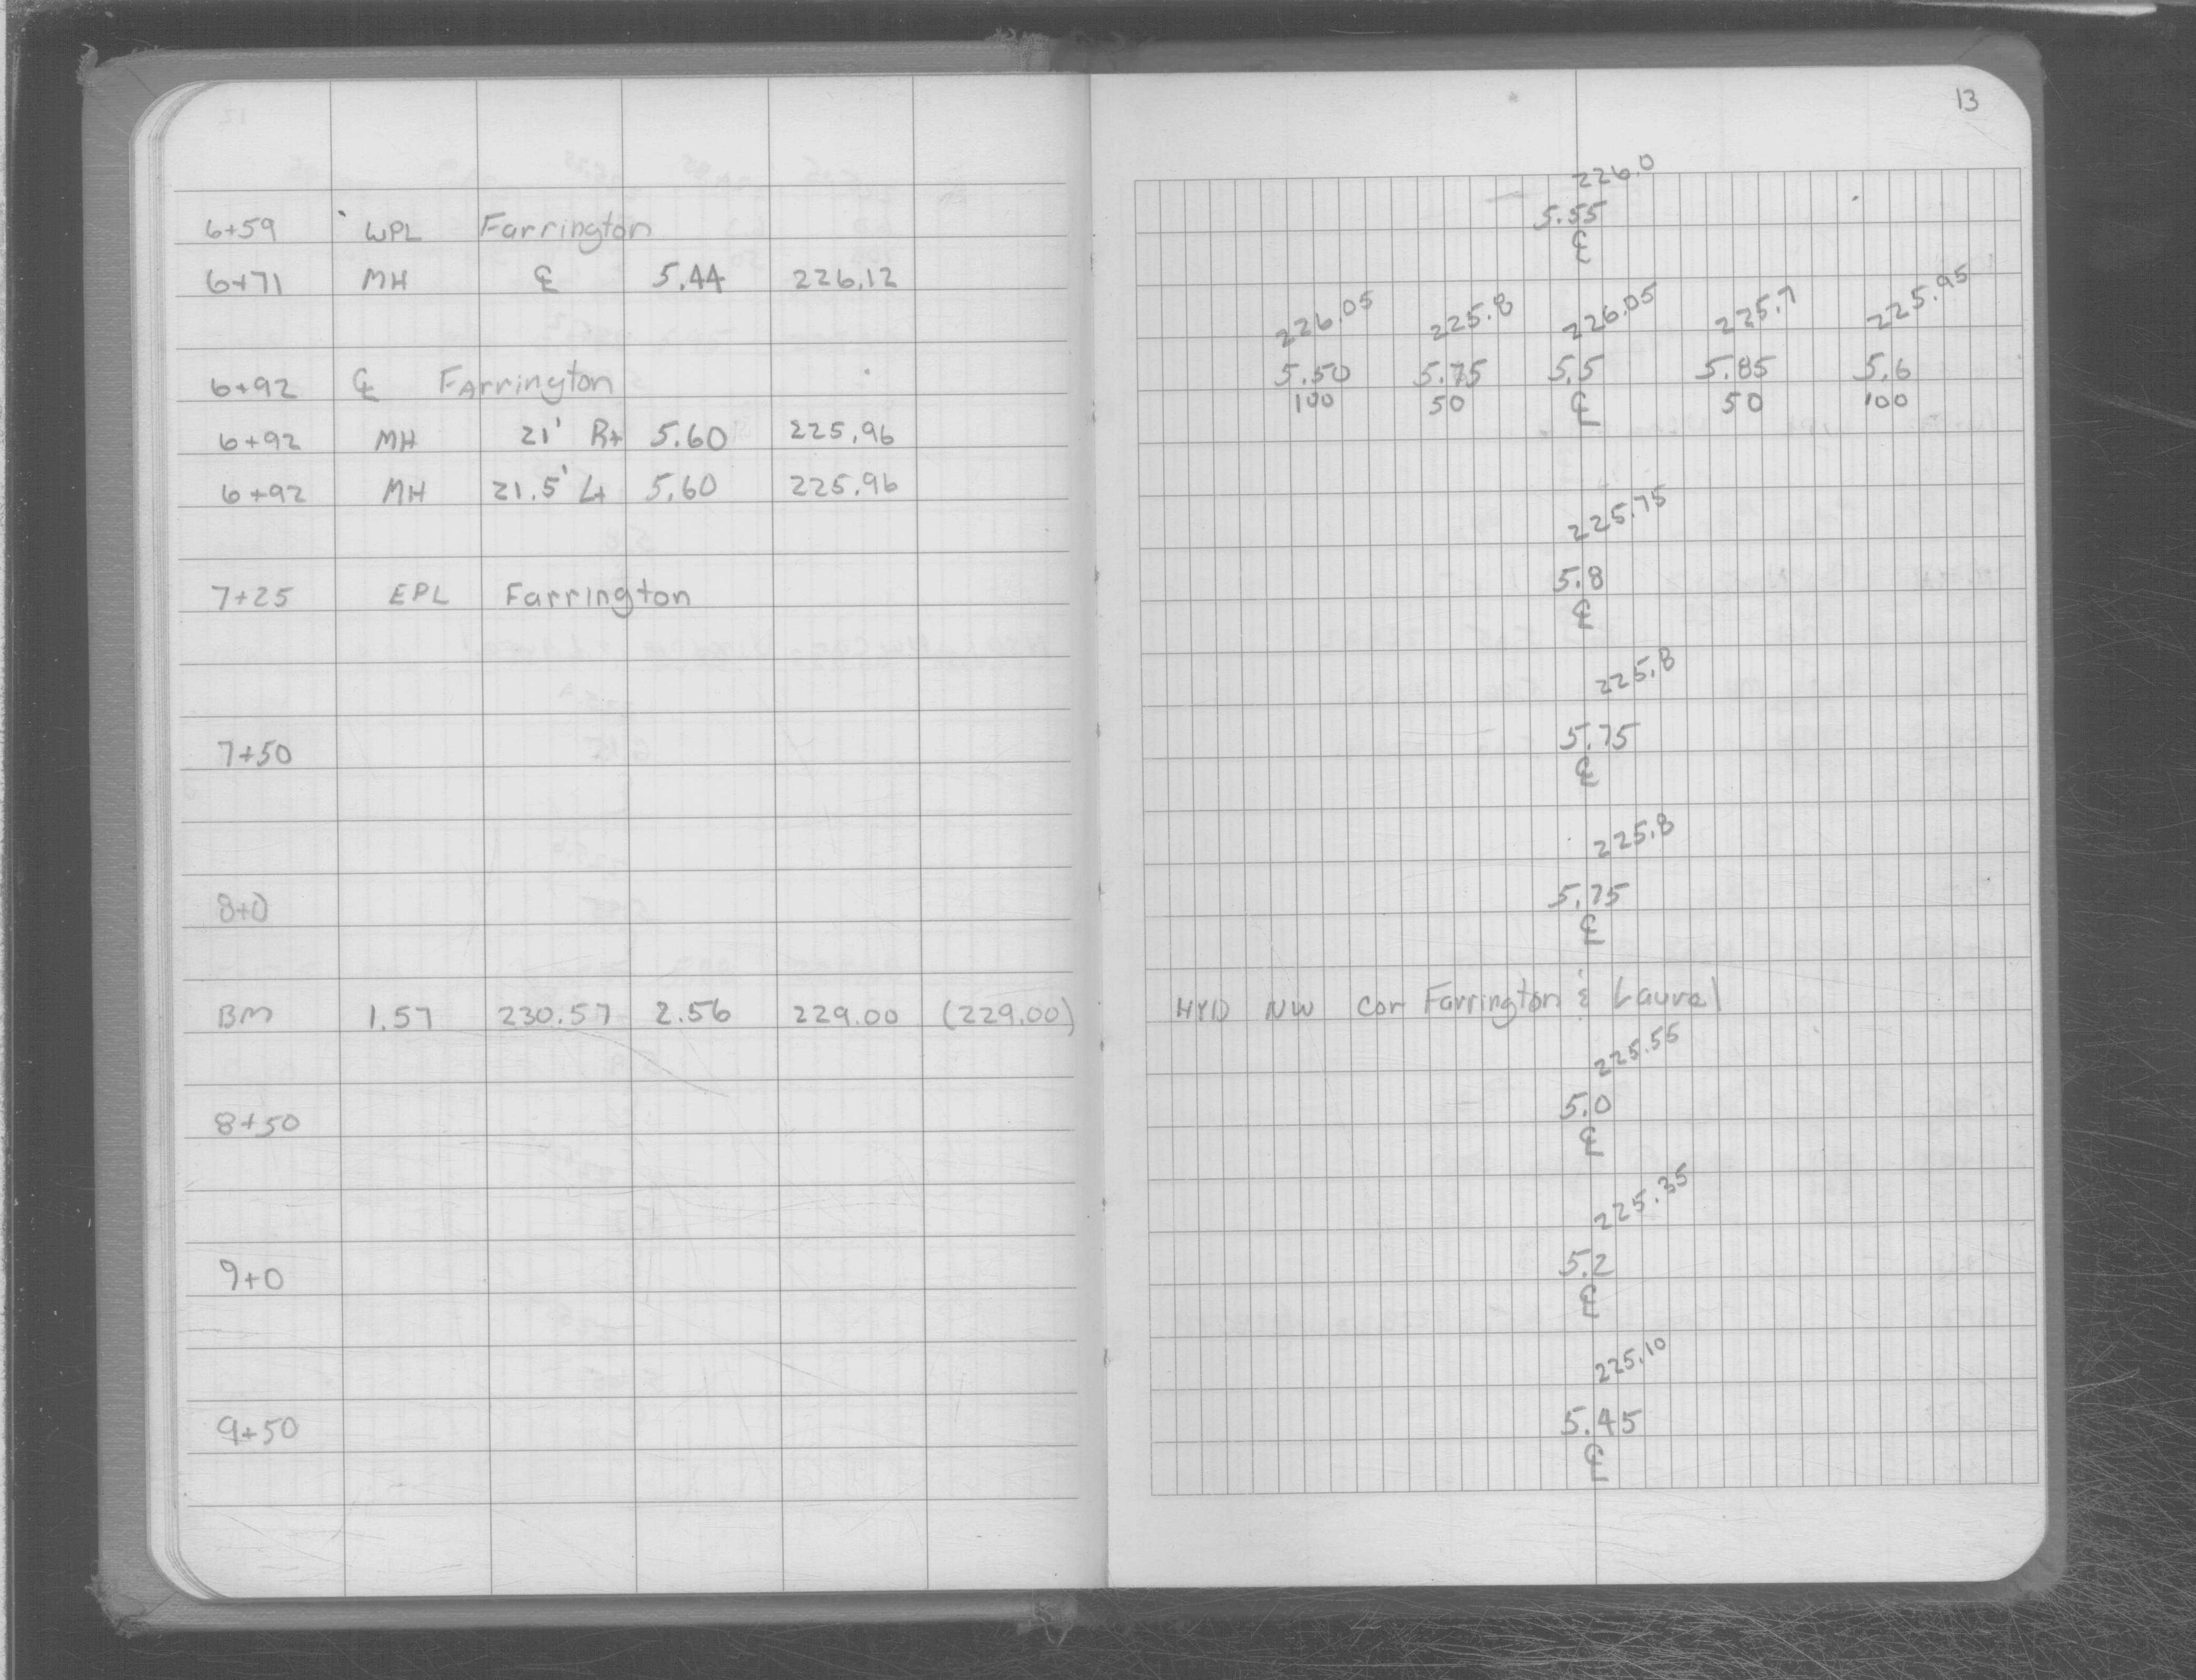 6+59 WPL Farrington
6+71 MH ℄ 5.44 226.12
6+92 ℄ FArrington
6+92 MH 21' Rt 5.60 225.96
6+92 MH 21.5' Lt 5.60 225.96
7+25 EPL Farrington
7+50
8+0
BM 1.57 230.57 2.56 229.00 (229.00)
8+50
9+0
9+50
13
226.0
5.55
℄
226.05 225.8 226.05 225.7 225.95
5.50 5.75 5.5 5.85 5.6
100 50 ℄ 50 100
225.75
5.8
℄
225.8
5.75
℄
225.8
5.75
℄
HYD NW Cor Farrington & Laurel
225.55
5.0
℄
225.35
5.2
℄
225.10
5.45
℄